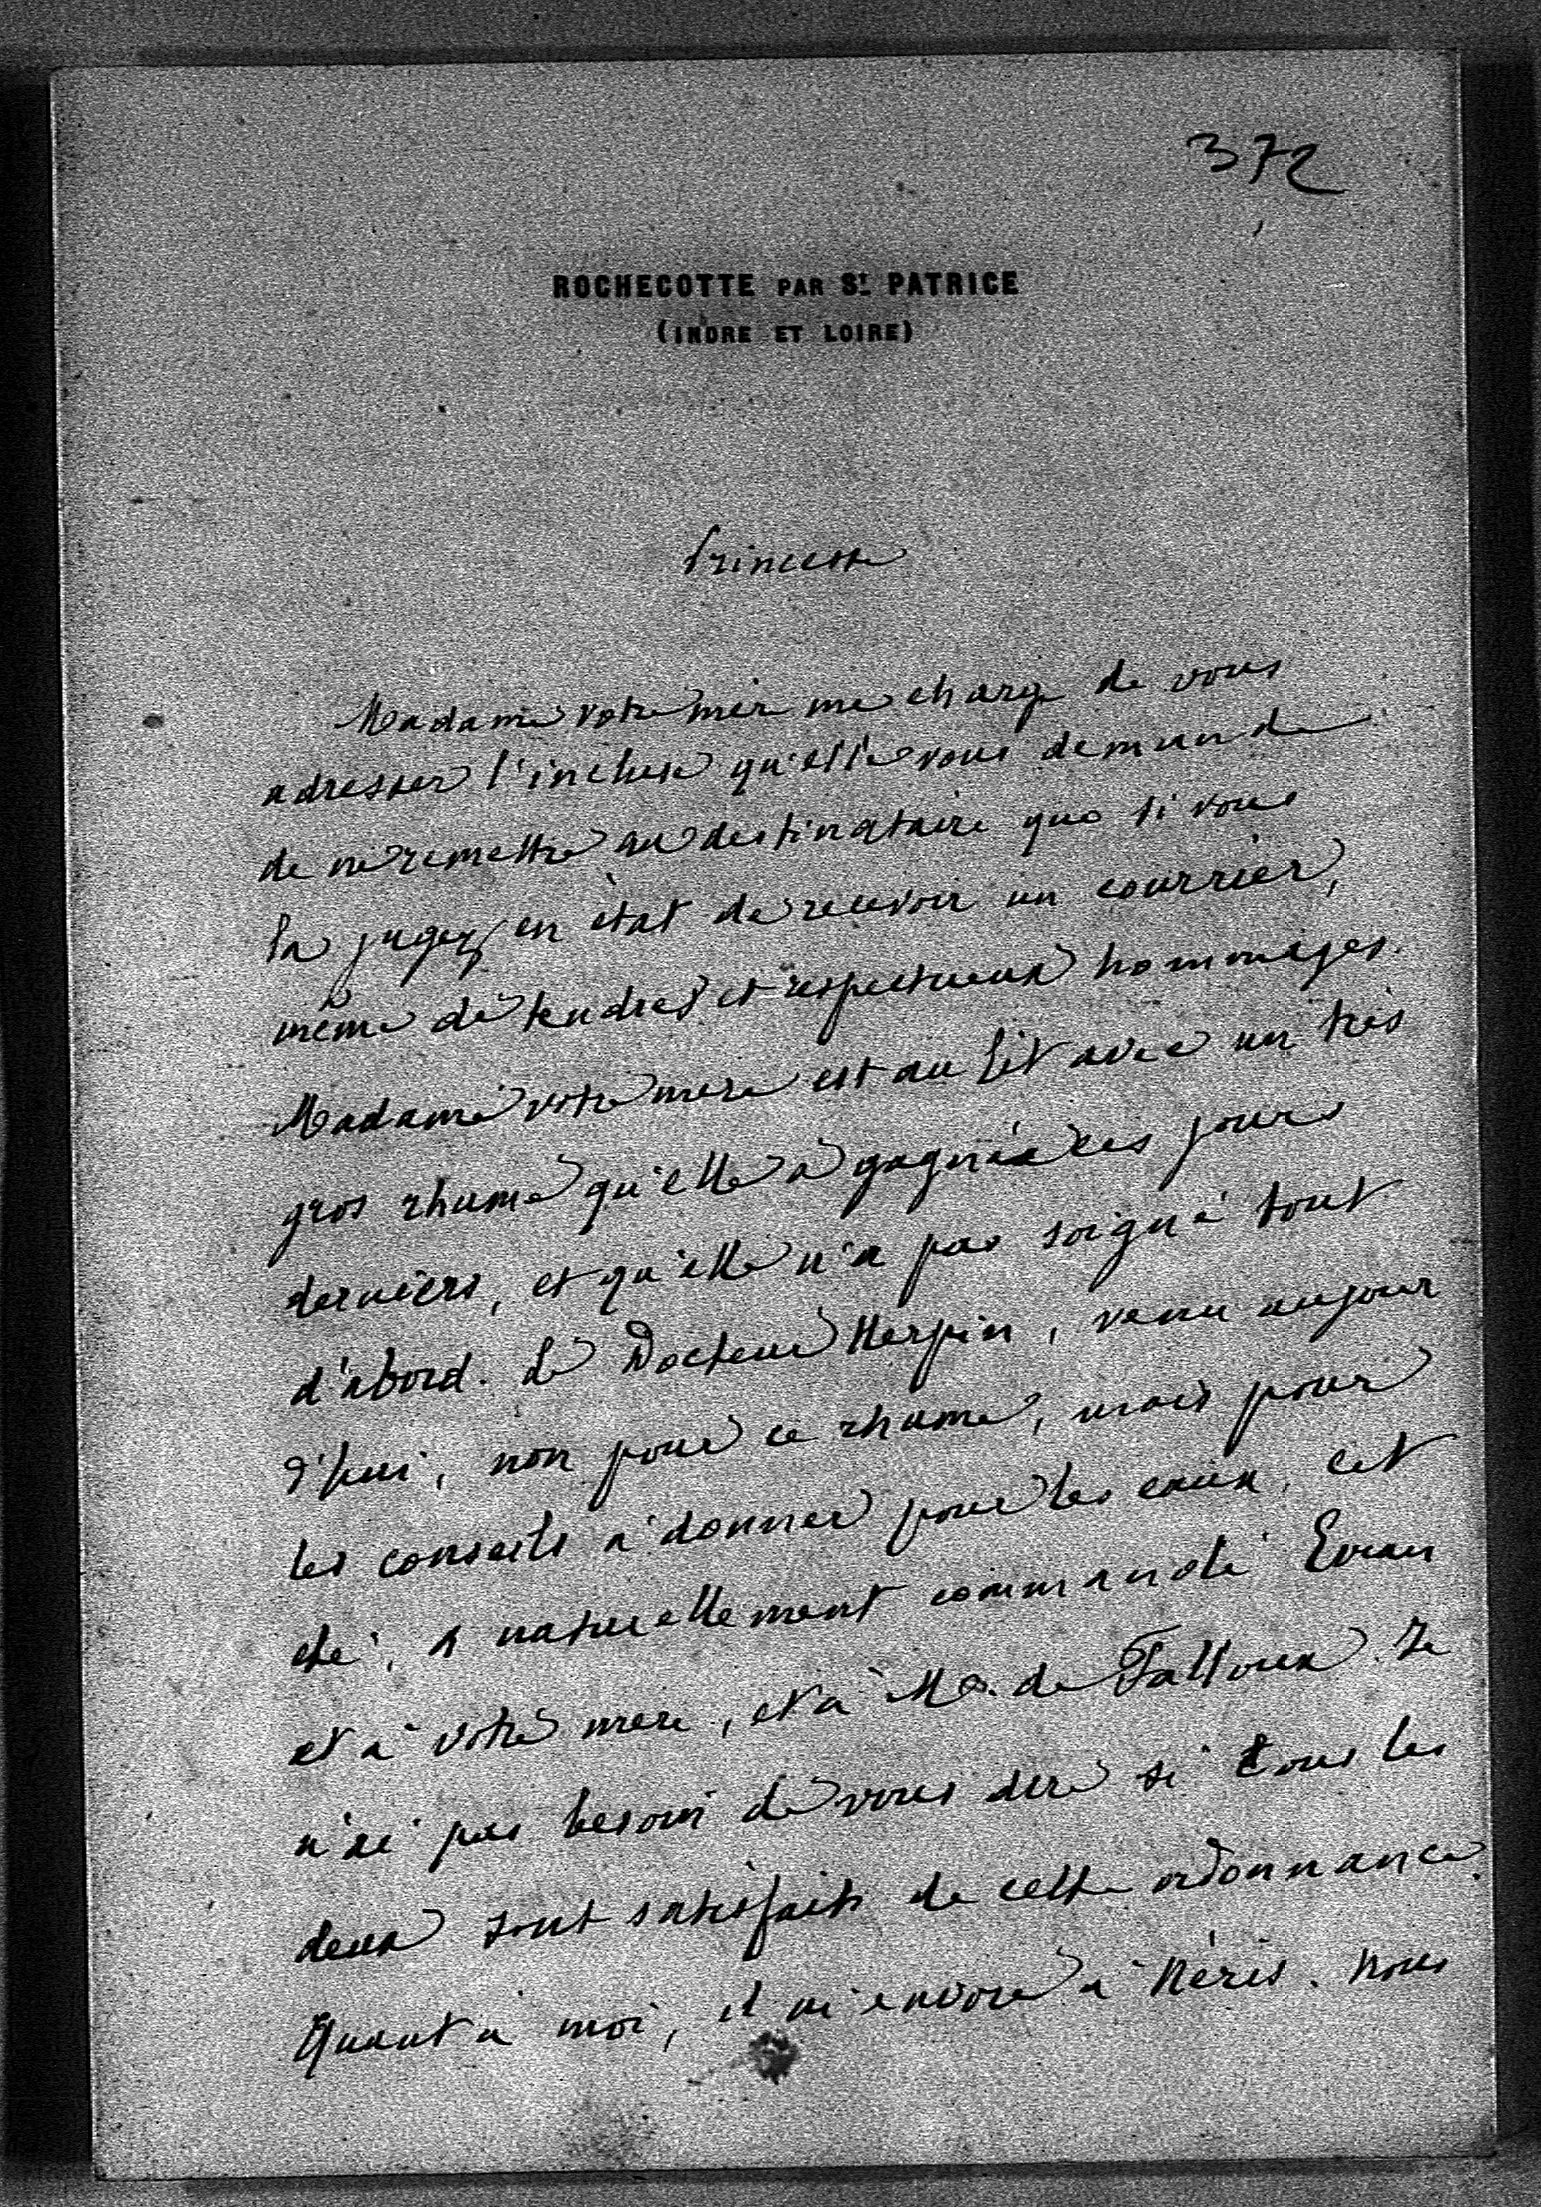 372
ROCHECOTTE PAR ST PATRICE
(INDRE ET LOIRE)
Princesse
Madame votre mère me charge de vous
adresser l'incluse qu'elle vous demande
de ne remettre au destinataire que si vous
la jugez en état de recevoir un courrier,
même de tendres et respectueux hommages.
Madame votre mère est au lit avec un très
gros rhume qu'elle a gagné ces jours
derniers, et qu'elle n'a pas soigné tout
d'abord. Le Docteur Herpin, venu aujour
d'hui, non pour ce rhume, mais pour
les conseils à donner pour les eaux, cet
été, a naturellement commandé Evian
et à votre mère, et à Mr. de Falloux. Je
n'ai pas besoin de vous dire si tous les
deux sont satisfaits de cette ordonnance.
Quant à moi, il m'envoie à Néris. Nous